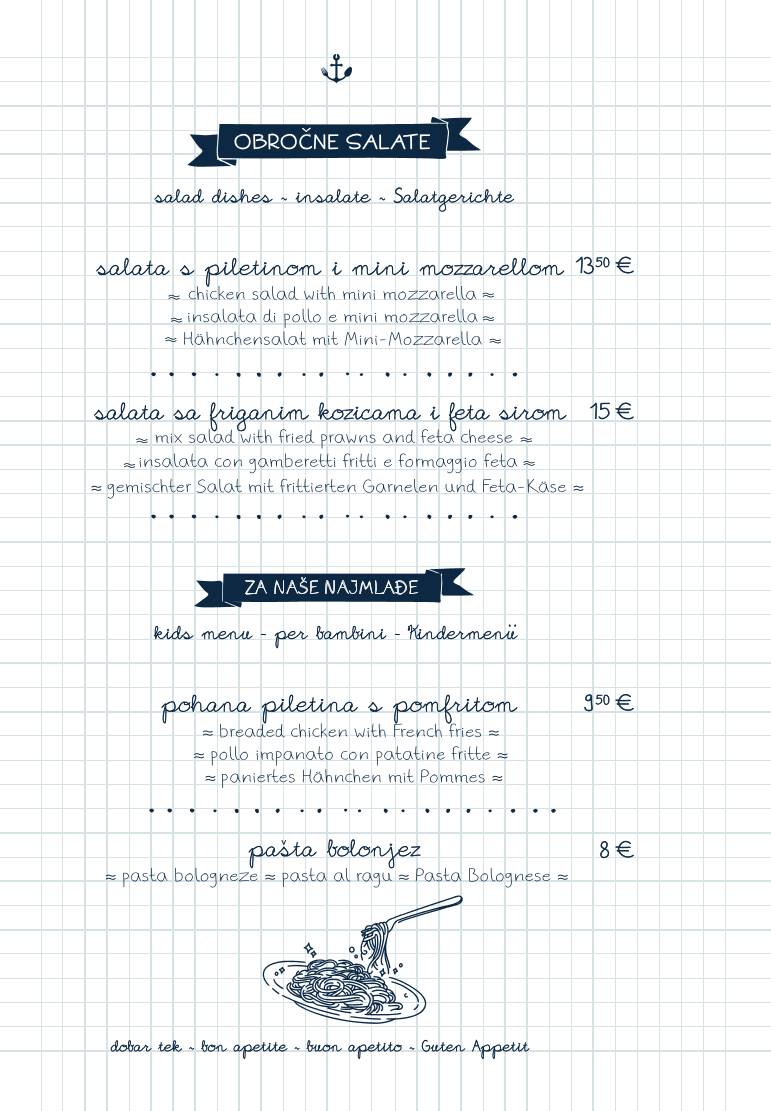 OBROČNE SALATE
salad dishes ~ insalate ~ Salatgerichte
salata s piletinom i mini mozzarellom 13⁵⁰ €
≈ chicken salad with mini mozzarella ≈
≈ insalata di pollo e mini mozzarella ≈
≈ Hähnchensalat mit Mini-Mozzarella ≈
salata sa friganim kozicama i feta sirom 15 €
≈ mix salad with fried prawns and feta cheese ≈
≈ insalata con gamberetti fritti e formaggio feta ≈
≈ gemischter Salat mit frittierten Garnelen und Feta-Käse ≈
ZA NAŠE NAJMLAĐE
kids menu - per bambini - Kindermenü
pohana piletina s pomfritom 9⁵⁰ €
≈ breaded chicken with French fries ≈
≈ pollo impanato con patatine fritte ≈
≈ paniertes Hähnchen mit Pommes ≈
pašta bolonjez 8 €
≈ pasta bologneze ≈ pasta al ragu ≈ Pasta Bolognese ≈
dobar tek ~ bon apetite ~ buon apetito ~ Guten Appetit